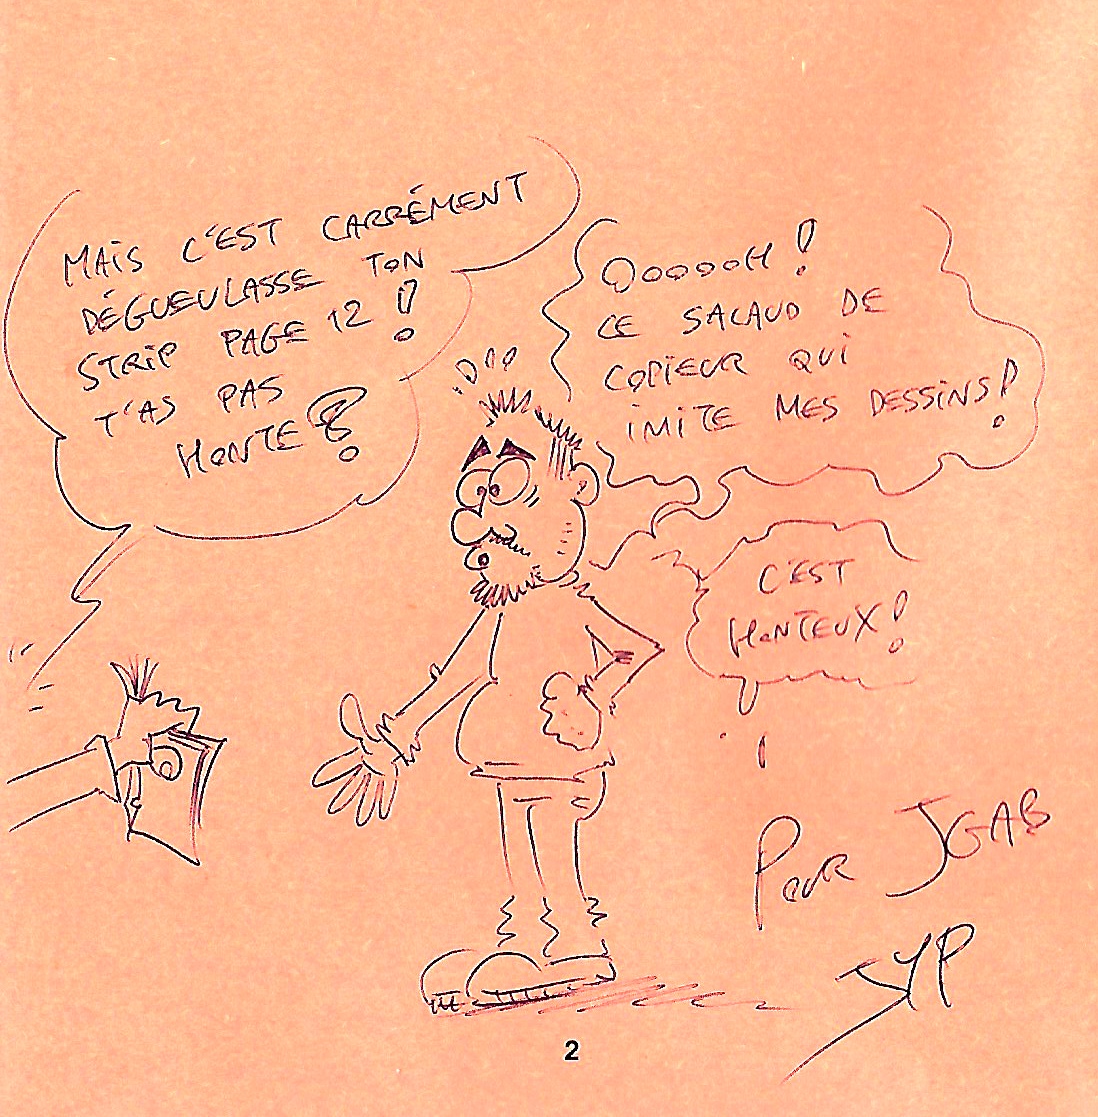 MAIS C'EST CARRÉMENT
DÉGUEULASSE TON
STRIP PAGE 12 !
T'AS PAS
HONTE ?
OOOOOH !
CE SALAUD DE
COPIEUR QUI
IMITE MES DESSINS !
C'EST
HONTEUX !
POUR JGAB
JYP
2